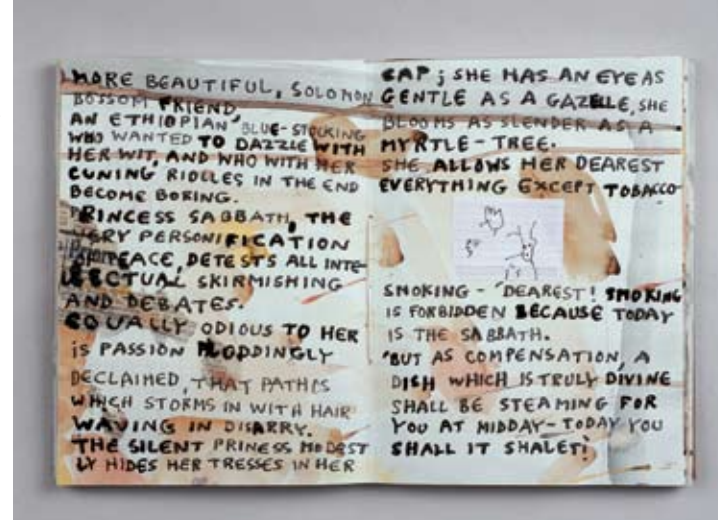 MORE BEAUTIFUL, SOLOMON
BOSSOM FRIEND
AN ETHIOPIAN BLUE-STOCKING
WHO WANTED TO DAZZLE WITH
HER WIT, AND WHO WITH HER
CUNING RIDLES IN THE END
BECOME BORING.
PRINCESS SABBATH, THE
VERY PERSONIFICATION
OF PEACE, DETESTS ALL INTE-
LECTUAL SKIRMISHING
AND DEBATES.
EQUALLY ODIOUS TO HER
IS PASSION PLODDINGLY
DECLAIMED, THAT PATHOS
WHICH STORMS IN WITH HAIR
WAVING IN DISARRY.
THE SILENT PRINESS MODEST
LY HIDES HER TRESSES IN HER
CAP; SHE HAS AN EYE AS
GENTLE AS A GAZELLE, SHE
BLOOMS AS SLENDER AS A
MYRTLE-TREE.
SHE ALLOWS HER DEAREST
EVERYTHING EXCEPT TOBACCO
SMOKING - "DEAREST! SMOKING
IS FORBIDDEN BECAUSE TODAY
IS THE SABBATH.
"BUT AS COMPENSATION, A
DISH WHICH IS TRULY DIVINE
SHALL BE STEAMING FOR
YOU AT MIDDAY-TODAY YOU
SHALL IT SHALET!